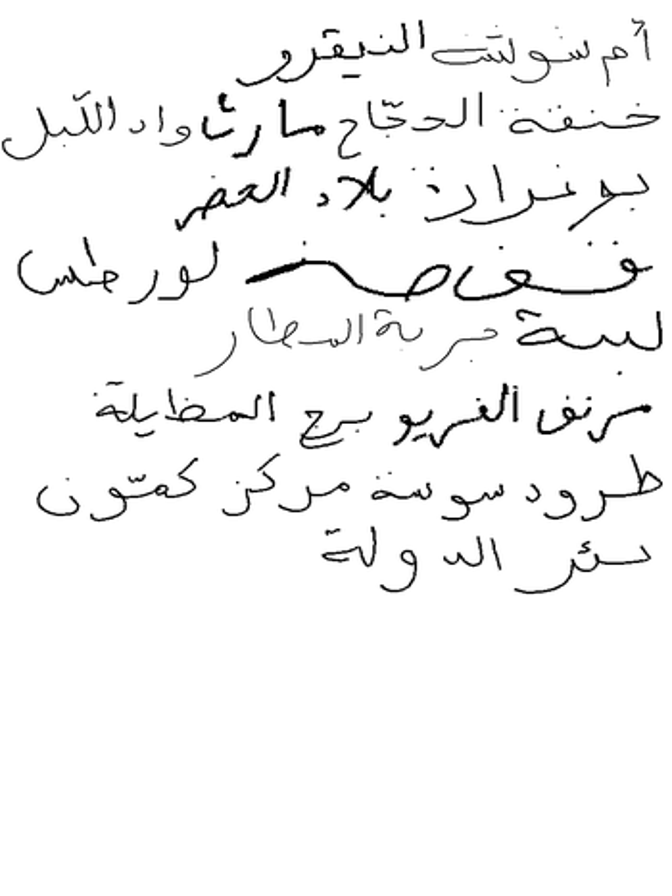 أم شوشة النيقرو
خنقة الحجاج مارث واد الليل
بوغرارة بلاد الحضر
قفصة لورطس
لبنة جربة المطار
مرنق الفريو برج المظايلة
طرود سوسة مركز كمّون
بئر الدولة